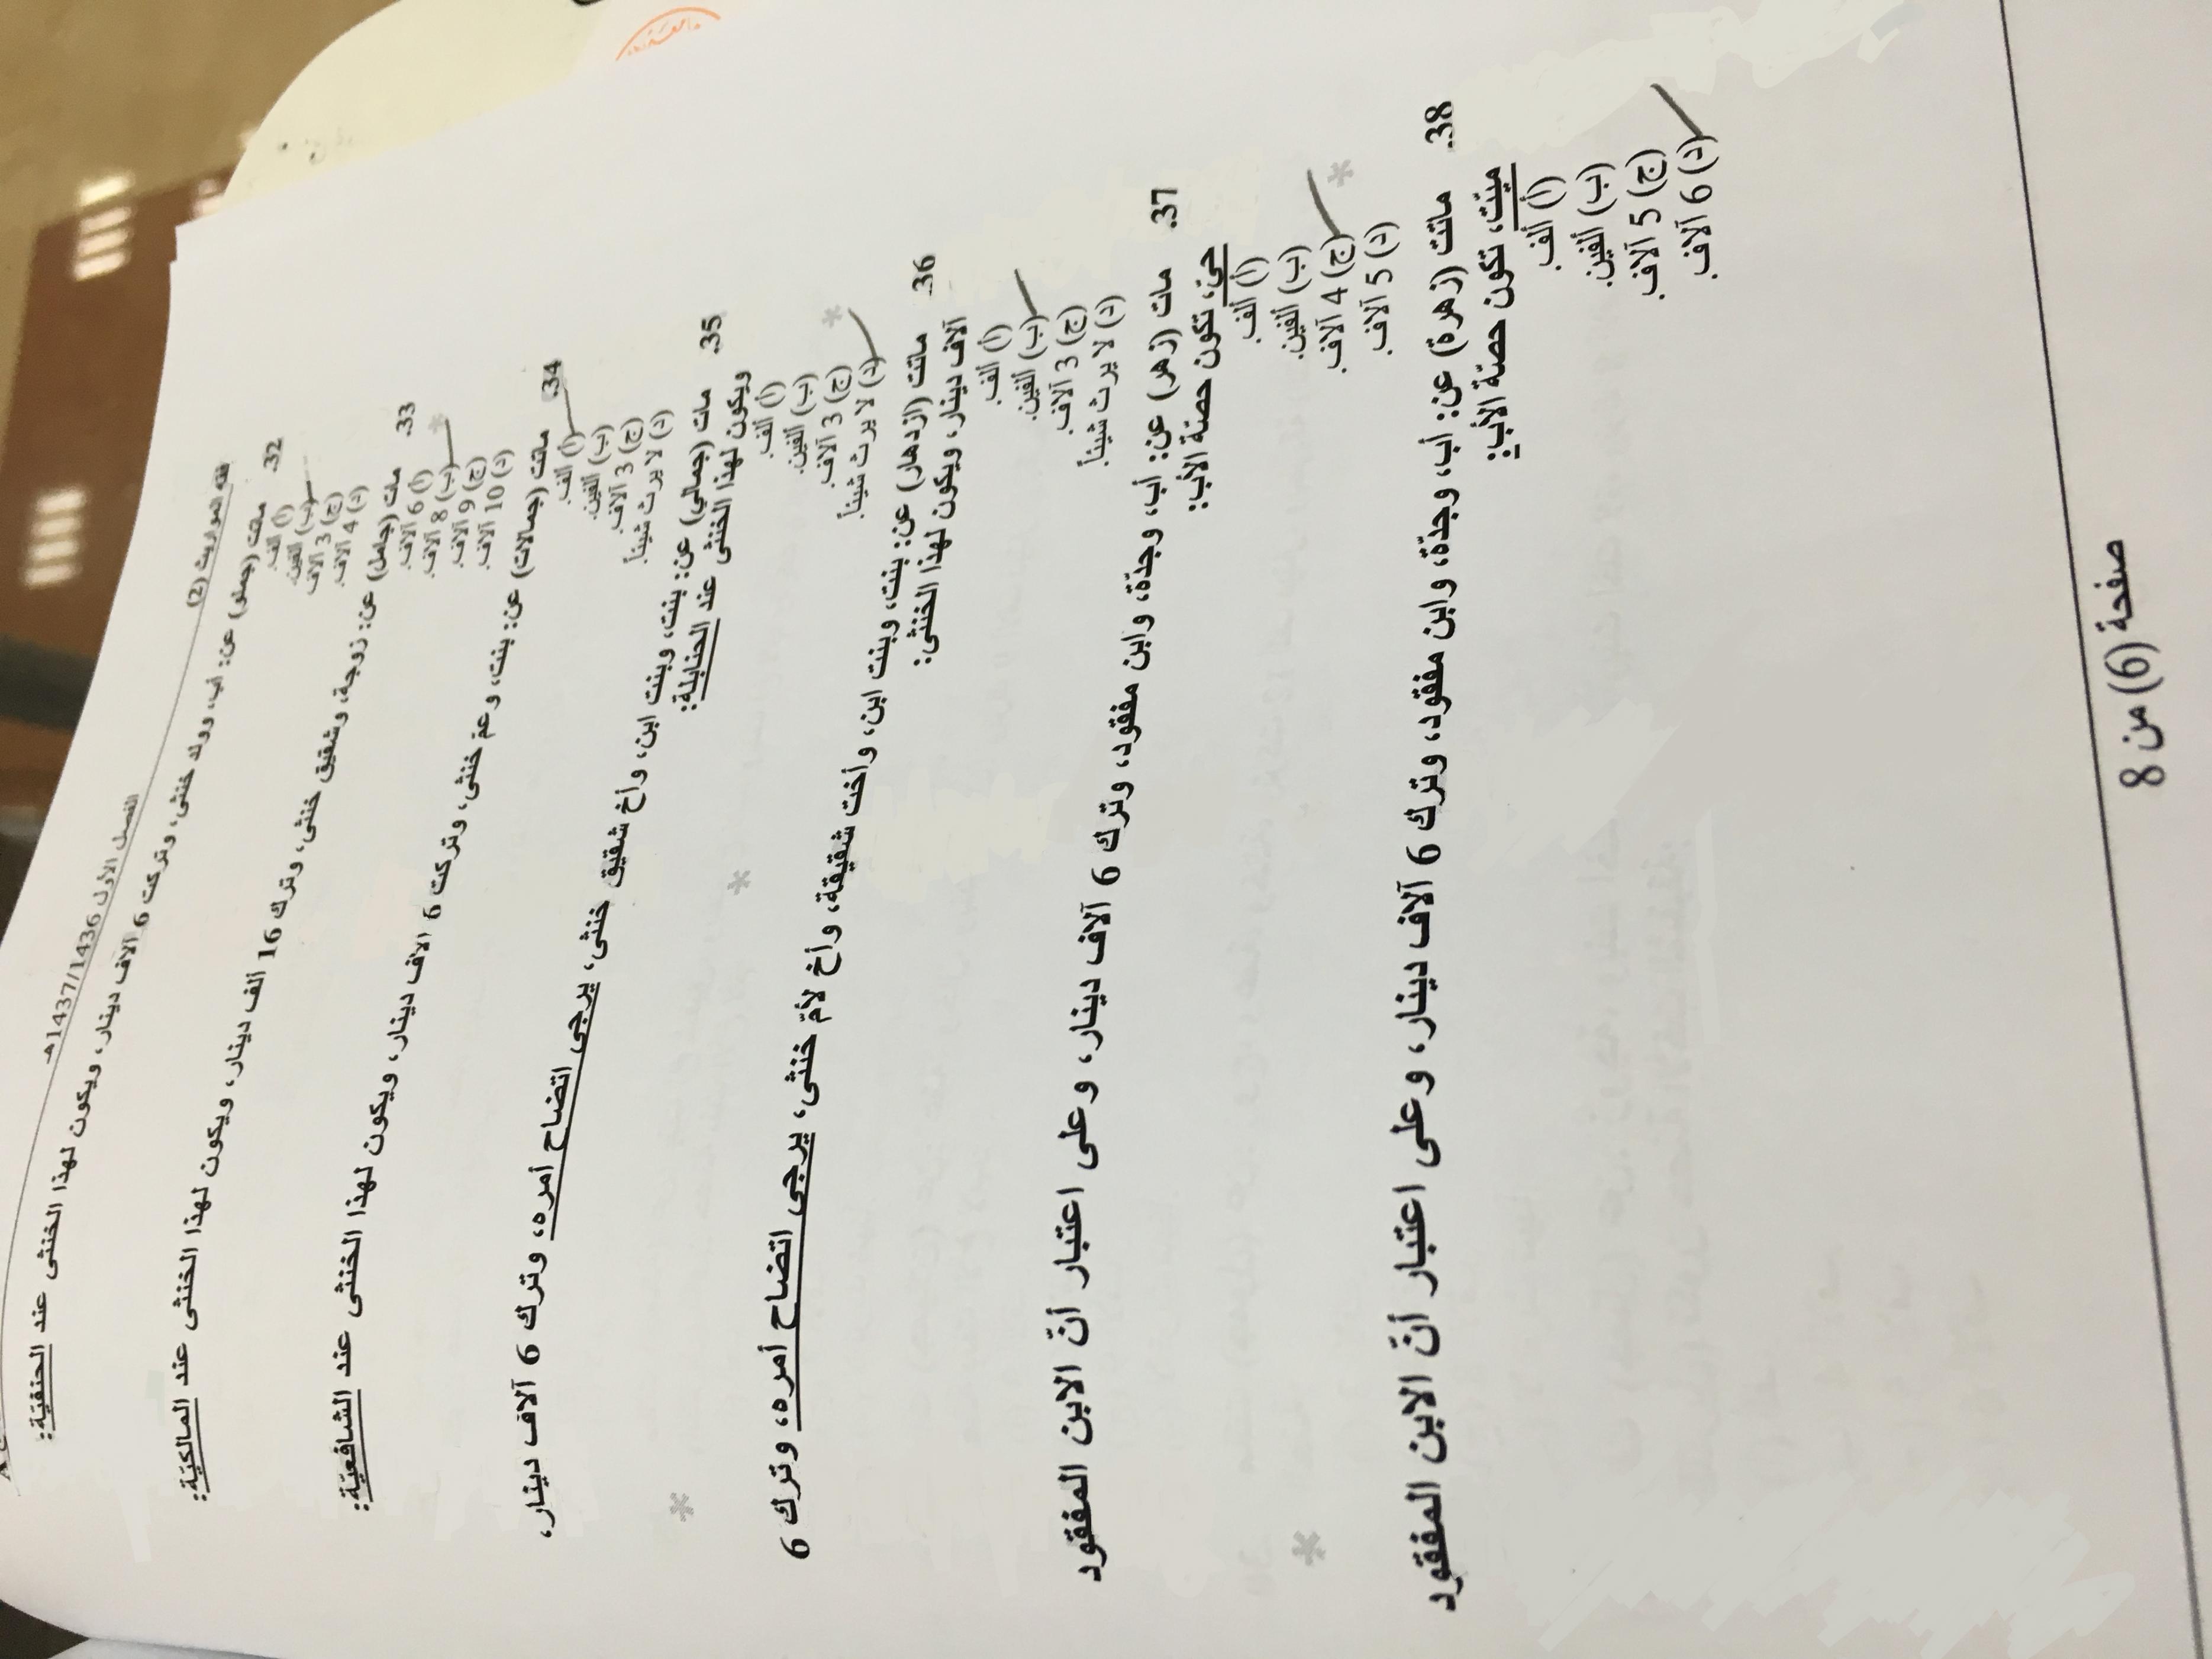 فقه المواريث (2) الفصل الأول 1437/1436هـ
32. ماتت (جملو) عن: أب، وولد خنثى، وتركت 6 آلاف دينار، ويكون لهذا الخنثى عند الحنفيّة:
(أ) ألف.
(ب) ألفين.
(ج) 3 آلاف
(د) 4 آلاف.
33. مات (جامل) عن: زوجة، وشقيق خنثى، وترك 16 ألف دينار، ويكون لهذا الخنثى عند المالكيّة:
(أ) 6 آلاف.
(ب) 8 آلاف.
(ج) 9 آلاف.
(د) 10 آلاف.
34. ماتت (جمالات) عن: بنت، وعمّ خنثى، وتركت 6 آلاف دينار، ويكون لهذا الخنثى عند الشافعيّة:
(أ) ألف.
(ب) ألفين.
(ج) 3 آلاف.
(د) لا يرث شيئاً.
35. مات (جمالي) عن: بنت، وبنت ابن، وأخ شقيق خنثى، يرجى اتضاح أمره، وترك 6 آلاف دينار،
ويكون لهذا الخنثى عند الحنابلة:
(أ) ألف.
(ب) ألفين.
(ج) 3 آلاف.
(د) لا يرث شيئاً.
36. ماتت (ازدهار) عن: بنت، وبنت ابن، وأخت شقيقة، وأخ لأمّ خنثى، يرجى اتضاح أمره، وترك 6
آلاف دينار، ويكون لهذا الخنثى:
(أ) ألف.
(ب) ألفين.
(ج) 3 آلاف.
(د) لا يرث شيئاً.
37. مات (زهر) عن: أب، وجدّة، وابن مفقود، وترك 6 آلاف دينار، وعلى اعتبار أنّ الابن المفقود
حيّ، تكون حصّة الأب:
(أ) ألف.
(ب) ألفين.
(ج) 4 آلاف.
(د) 5 آلاف.
38. ماتت (زهرة) عن: أب، وجدّة، وابن مفقود، وترك 6 آلاف دينار، وعلى اعتبار أنّ الابن المفقود
ميّت، تكون حصّة الأب:
(أ) ألف.
(ب) ألفين.
(ج) 5 آلاف.
(د) 6 آلاف.
صفحة (6) من 8